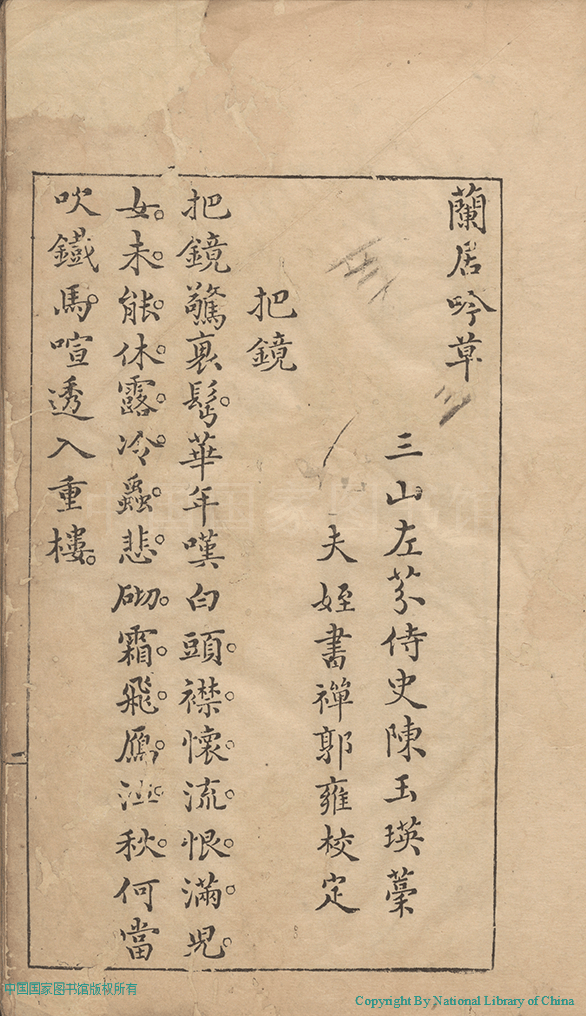 蘭居吟草
三山左芬侍史陳玉瑛藁
夫姪書禪郭雍校定
把鏡
把鏡驚衰髩華年嘆白頭襟懷流恨滿兒
女未能休露冷蟲悲砌霜飛鴈泣秋何當
吹鐵馬喧透入重樓
中国国家图书馆版权所有
Copyright By National Library of China